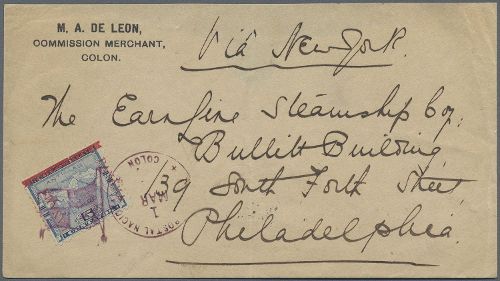 M. A. DE LEON,
COMMISSION MERCHANT,
COLON.
Viâ New York.
The Earn Line Steamship Coy:
Bullitt Building
139 South Forth Street
Philadelphia.
POSTAL NACIO
COLON
1
MAR